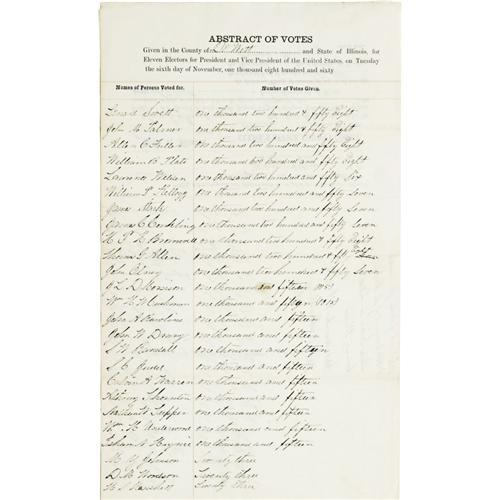 ABSTRACT OF VOTES
Given in the County of De Witt and State of Illinois, for
Eleven Electors for President and Vice President of the United States, on Tuesday
the sixth day of November, one thousand eight hundred and sixty
Names of Persons Voted for. Number of Votes Given.
Leonard Swett one thousand two hundred & fifty Eight
John M Palmer one thousand two hundred & fifty Eight
Allen C Fuller one thousand two hundred and fifty Eight
William B Plato one thousand two hundred and fifty Eight
Lawrence Weldon one thousand two hundred and fifty Six
William P Kellogg one thousand two hundred and fifty Seven
James Stark one thousand two hundred and fifty Seven
James C Conkling one thousand two hundred & fifty Seven
H P H Bromwell one thousand two hundred & fifty Eight
Thomas G Allen one thousand two hundred & fifty Eight
John Olney one thousand two hundred & fifty Seven
one thousand and fifteen 1015
Wm H W Cushman one thousand and fifteen (1015)
John A Rawlins one thousand and fifteen
John W Drury one thousand and fifteen
S W Randall one thousand and fifteen
one thousand and fifteen
Calvin A Warren one thousand and fifteen
Thornton one thousand and fifteen
one thousand and fifteen
Wm H Underwood one thousand and fifteen
Isham N Haynie one thousand and fifteen
M Y Johnson Twenty three
D M Woodson Twenty three
Twenty three